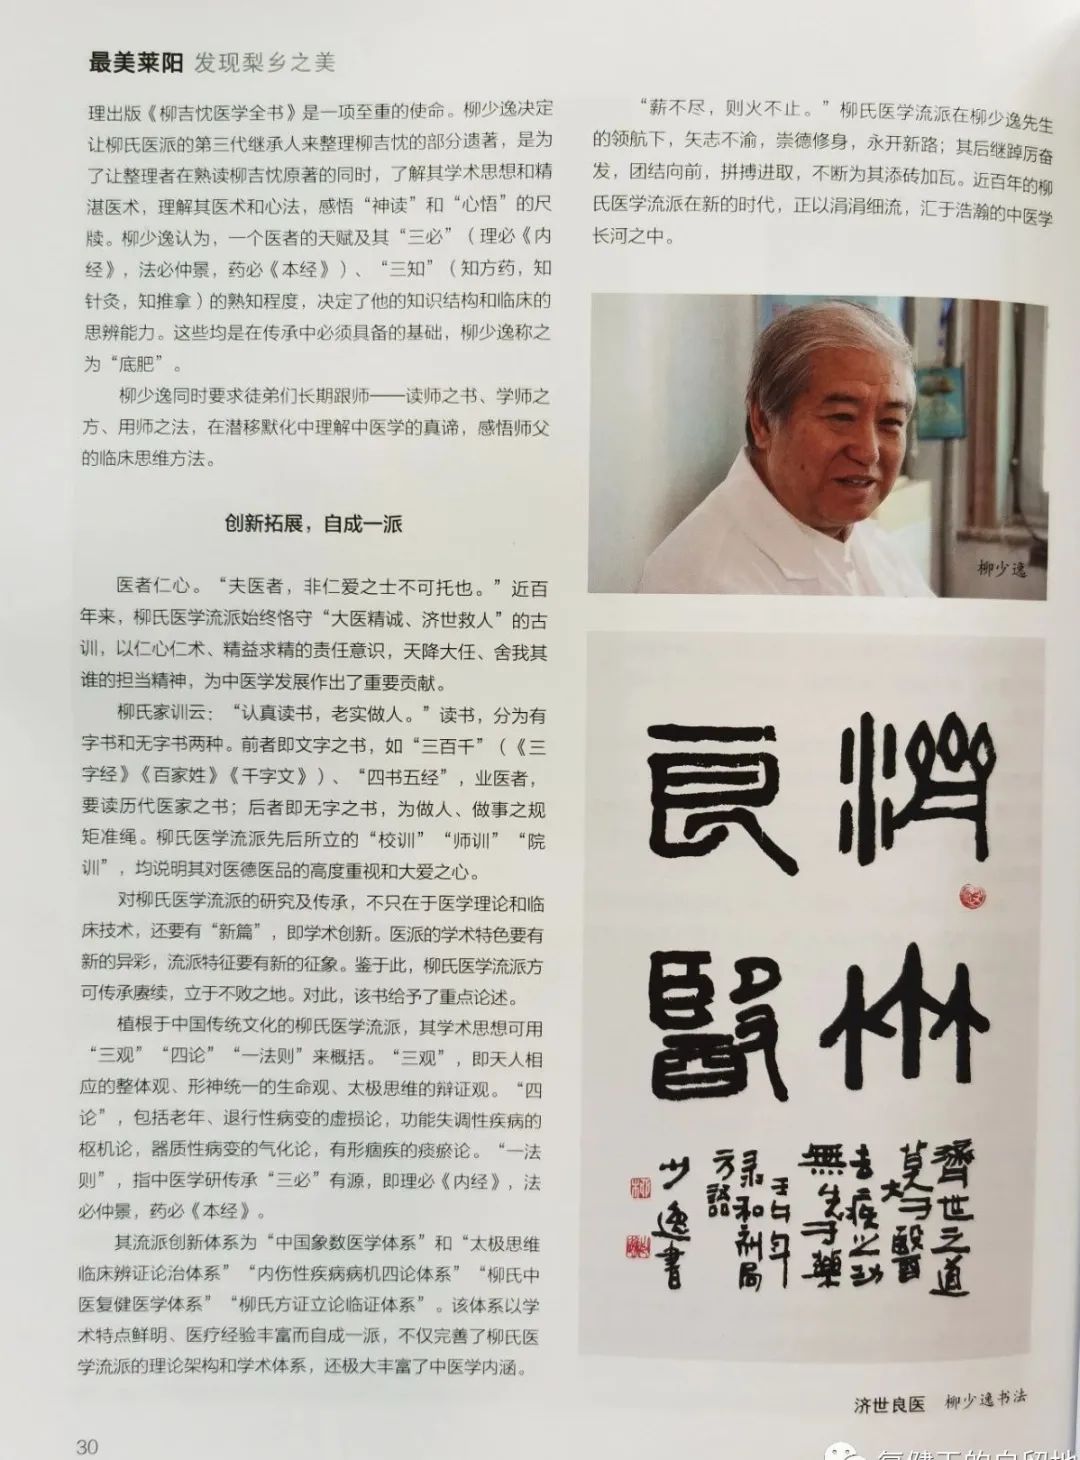 最美莱阳 发现梨乡之美
理出版《柳吉忱医学全书》是一项至重的使命。柳少逸决定
让柳氏医派的第三代继承人来整理柳吉忱的部分遗著，是为
了让整理者在熟读柳吉忱原著的同时，了解其学术思想和精
湛医术，理解其医术和心法，感悟“神读”和“心悟”的尺
牍。柳少逸认为，一个医者的天赋及其“三必”（理必《内
经》，法必仲景，药必《本经》）、“三知”（知方药，知
针灸，知推拿）的熟知程度，决定了他的知识结构和临床的
思辨能力。这些均是在传承中必须具备的基础，柳少逸称之
为“底肥”。
柳少逸同时要求徒弟们长期跟师——读师之书、学师之
方、用师之法，在潜移默化中理解中医学的真谛，感悟师父
的临床思维方法。
创新拓展，自成一派
医者仁心。“夫医者，非仁爱之士不可托也。”近百
年来，柳氏医学流派始终恪守“大医精诚、济世救人”的古
训，以仁心仁术、精益求精的责任意识，天降大任、舍我其
谁的担当精神，为中医学发展作出了重要贡献。
柳氏家训云：“认真读书，老实做人。”读书，分为有
字书和无字书两种。前者即文字之书，如“三百千”（《三
字经》《百家姓》《千字文》）、“四书五经”，业医者，
要读历代医家之书；后者即无字之书，为做人、做事之规
矩准绳。柳氏医学流派先后所立的“校训”“师训”“院
训”，均说明其对医德医品的高度重视和大爱之心。
对柳氏医学流派的研究及传承，不只在于医学理论和临
床技术，还要有“新篇”，即学术创新。医派的学术特色要有
新的异彩，流派特征要有新的征象。鉴于此，柳氏医学流派方
可传承赓续，立于不败之地。对此，该书给予了重点论述。
植根于中国传统文化的柳氏医学流派，其学术思想可用
“三观”“四论”“一法则”来概括。“三观”，即天人相
应的整体观、形神统一的生命观、太极思维的辩证观。“四
论”，包括老年、退行性病变的虚损论，功能失调性疾病的
枢机论，器质性病变的气化论，有形痼疾的痰瘀论。“一法
则”，指中医学研传承“三必”有源，即理必《内经》，法
必仲景，药必《本经》。
其流派创新体系为“中国象数医学体系”和“太极思维
临床辨证论治体系”“内伤性疾病病机四论体系”“柳氏中
医复健医学体系”“柳氏方证立论临证体系”。该体系以学
术特点鲜明、医疗经验丰富而自成一派，不仅完善了柳氏医
学流派的理论架构和学术体系，还极大丰富了中医学内涵。
“薪不尽，则火不止。”柳氏医学流派在柳少逸先生
的领航下，矢志不渝，崇德修身，永开新路；其后继踔厉奋
发，团结向前，拼搏进取，不断为其添砖加瓦。近百年的柳
氏医学流派在新的时代，正以涓涓细流，汇于浩瀚的中医学
长河之中。
柳少逸
濟世
良醫
濟世之道
莫大于醫
去疾之功
無先于藥
壬午年
录和剂局
方語
少逸書
济世良医 柳少逸书法
30
复健王的自留地